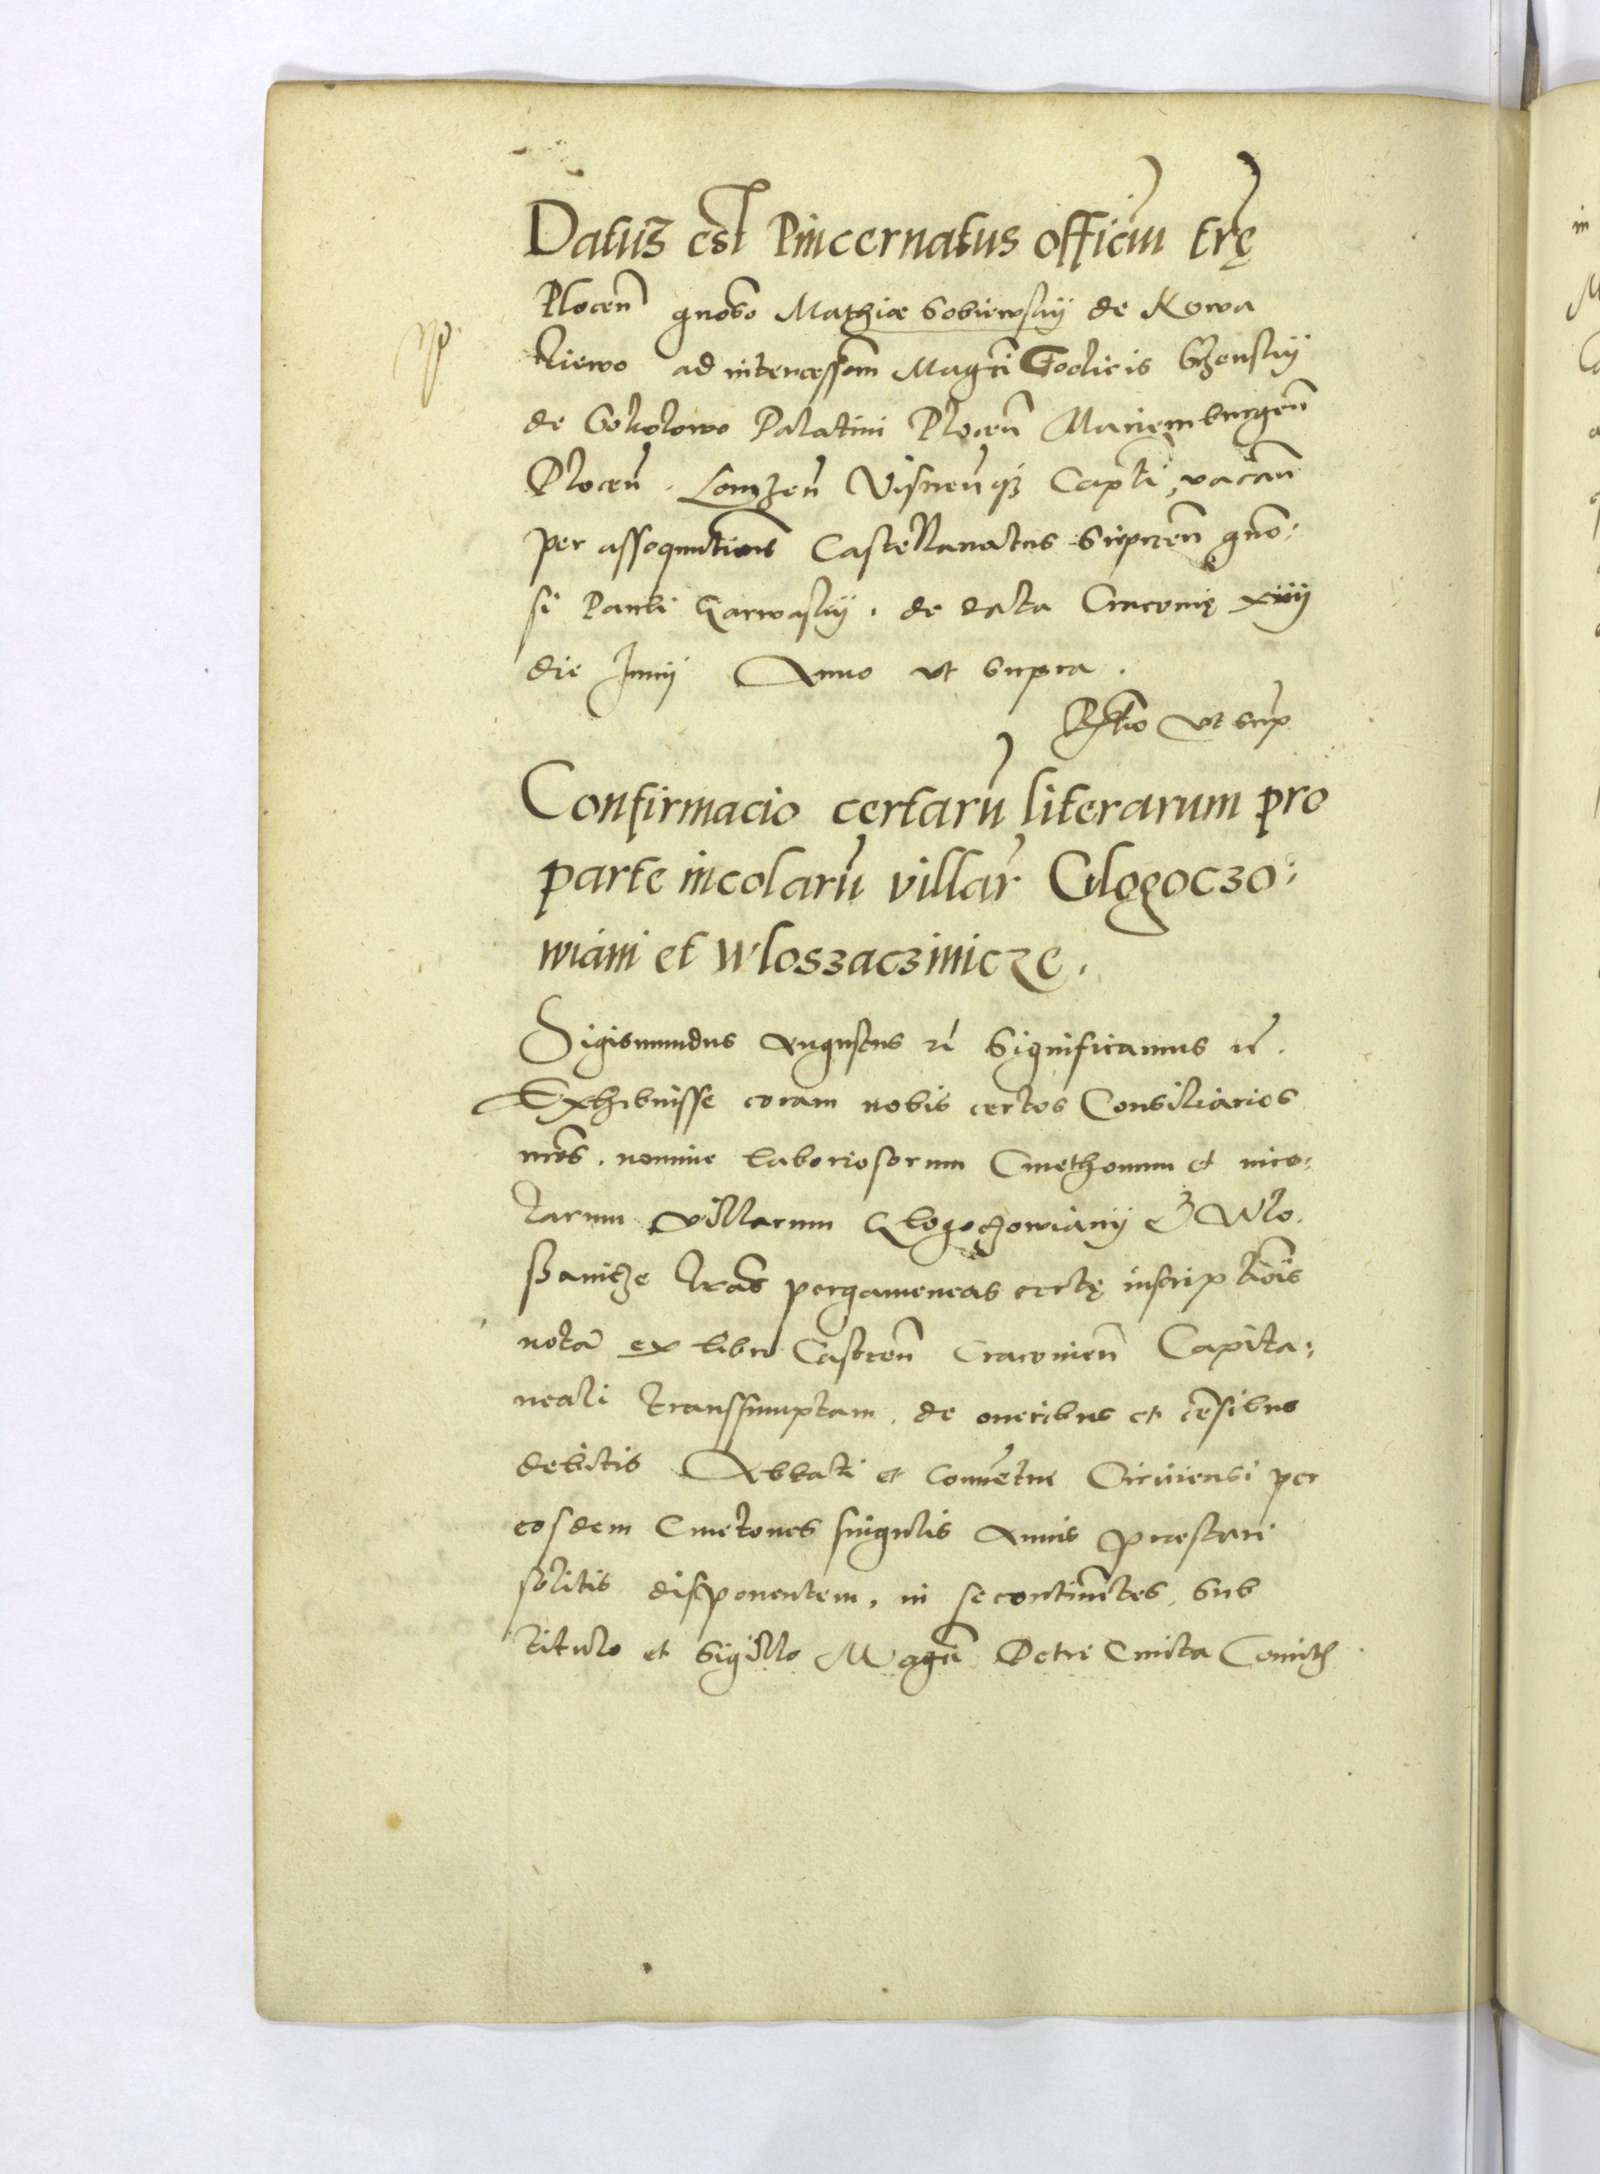 Datuʒ est Pincernatus officiũ trę
Plocen̄ gnoso Mathiæ Sobiewskij de Kowa
liewo ad intercessom̄ Magci Foelicis Srzenskij
de Sokolowo Palatini Plocen̄ Mariemburgen̄
Plocen̄. Lomzen̄ Visnen̄qȝ Captī, vacan̄
per assequutionē Castellanatus Sieprcen̄ gno:
si Pauli Garwaskij. de data Cracovię xiiij
die Junij Anno vt supra.
Rtio vt sup̄
Confirmacio certarũ literarum pro
parte incolarũ villar̄ Glęgoczo:
wiani et Wloszaczinicze.
Sigismundus Augustus rc̄ Significamus rc̄.
Exhibuisse coram nobis certos Consiliarios
nr̄os. nomine laboriosorum Cmethonum et inco:
larum villarum Glogoczowianij & Wlo.
ssanitze lr̄as pergameneas certę inscriptiōis
notā ex libro Castren̄ Cracovien̄ Capita:
neali transsumptam. de oneribus et cēsibus
debitis Abbati et Convētui Tinciensi per
eosdem Cmetones singulis Annis præstari
solitis disponentem, in se continētes, Sub
titulo et sigillo Magci Petri Cmita Comit̄